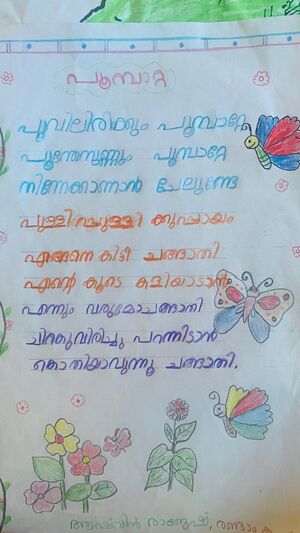 പൂമ്പാറ്റ
പൂവിലിരിക്കും പൂമ്പാറ്റേ
പൂന്തേനുണ്ണും പൂമ്പാറ്റേ
നിന്നെക്കാണാൻ ചേലുണ്ടേ
പുള്ളിപ്പുള്ളി ക്കുപ്പായം
എങ്ങനെ കിട്ടീ ചങ്ങാതി
എന്റെ കൂടെ കളിയാടാൻ
എന്നും വരുമോചങ്ങാതി
ചിറകുവിരിച്ചു പറന്നിടാൻ
കൊതിയാവുന്നൂ ചങ്ങാതി.
അശ്വിൻ രാജേഷ്, രണ്ടാം